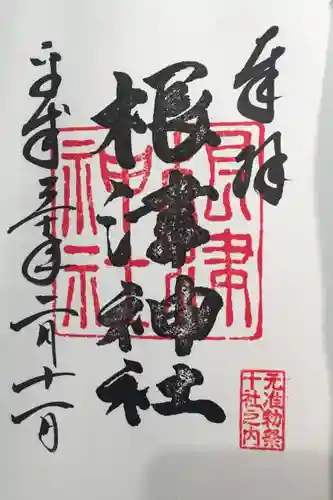 奉拝
根津神社
根津
神社
元准勅祭
十社之内
平成三十年二月十一日